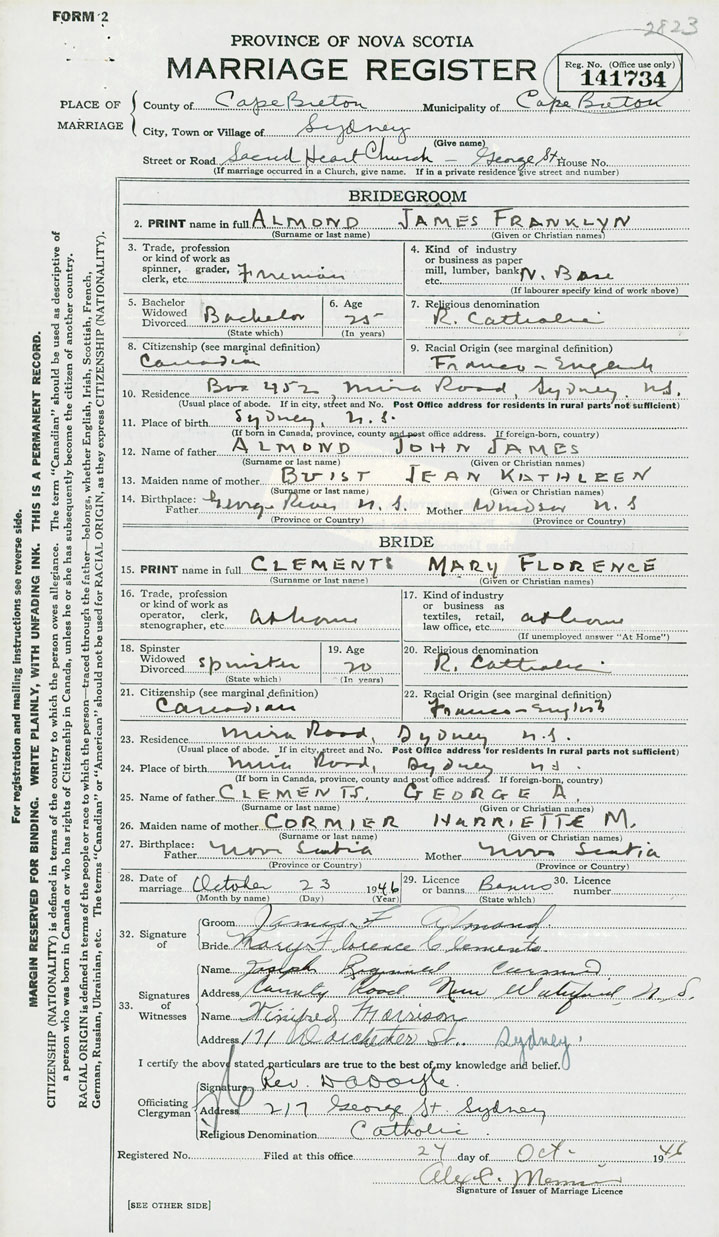 FORM 2
2823
PROVINCE OF NOVA SCOTIA
MARRIAGE REGISTER
Reg. No. (Office use only)
141734
PLACE OF MARRIAGE
County of Cape Breton Municipality of Cape Breton
City, Town or Village of Sydney
(Give name)
Street or Road Sacred Heart Church – George St. House No.
(If marriage occurred in a Church, give name. If in a private residence give street and number)
BRIDEGROOM
2. PRINT name in full ALMOND JAMES FRANKLYN
(Surname or last name) (Given or Christian names)
3. Trade, profession or kind of work as spinner, grader, clerk, etc. Fireman
4. Kind of industry or business as paper mill, lumber, bank, etc. N. Base
(If labourer specify kind of work above)
5. Bachelor Widowed Divorced Bachelor
(State which)
6. Age 25
(In years)
7. Religious denomination R. Catholic
8. Citizenship (see marginal definition) Canadian
9. Racial Origin (see marginal definition) Franco-English
10. Residence Box 452, Mira Road, Sydney, N.S.
(Usual place of abode. If in city, street and No. Post Office address for residents in rural parts not sufficient)
11. Place of birth Sydney, N.S.
(If born in Canada, province, county and post office address. If foreign-born, country)
12. Name of father ALMOND JOHN JAMES
(Surname or last name) (Given or Christian names)
13. Maiden name of mother BUIST JEAN KATHLEEN
(Surname or last name) (Given or Christian names)
14. Birthplace: Father George River N.S. Mother Windsor N.S
(Province or Country) (Province or Country)
BRIDE
15. PRINT name in full CLEMENTS MARY FLORENCE
(Surname or last name) (Given or Christian names)
16. Trade, profession or kind of work as operator, clerk, stenographer, etc. at home
17. Kind of industry or business as textiles, retail, law office, etc. at home
(If unemployed answer "At Home")
18. Spinster Widowed Divorced Spinster
(State which)
19. Age 20
(In years)
20. Religious denomination R. Catholic
21. Citizenship (see marginal definition) Canadian
22. Racial Origin (see marginal definition) Franco-English
23. Residence Mira Road, Sydney N.S.
(Usual place of abode. If in city, street and No. Post Office address for residents in rural parts not sufficient)
24. Place of birth Mira Road, Sydney N.S.
(If born in Canada, province, county and post office address. If foreign-born, country)
25. Name of father CLEMENTS, GEORGE A.
(Surname or last name) (Given or Christian names)
26. Maiden name of mother CORMIER HARRIETTE M.
(Surname or last name) (Given or Christian names)
27. Birthplace: Father Nova Scotia Mother Nova Scotia
(Province or Country) (Province or Country)
28. Date of marriage October 23 1946
(Month by name) (Day) (Year)
29. Licence or banns Banns
(State which)
30. Licence number
32. Signature of
Groom James F Almond
Bride Mary Florence Clements
33. Signatures of Witnesses
Name Joseph Reginald
Address County Road New Waterford, N.S.
Name Winifred Morrison
Address 171 Dorchester St. Sydney
I certify the above stated particulars are true to the best of my knowledge and belief.
Officiating Clergyman
Signature Rev. Doyle
Address 217 George St. Sydney
Religious Denomination Catholic
Registered No. Filed at this office 24 day of Oct. 1946
Signature of Issuer of Marriage Licence
[SEE OTHER SIDE]
For registration and mailing instructions see reverse side.
MARGIN RESERVED FOR BINDING. WRITE PLAINLY, WITH UNFADING INK. THIS IS A PERMANENT RECORD.
CITIZENSHIP (NATIONALITY) is defined in terms of the country to which the person owes allegiance. The term "Canadian" should be used as descriptive of
a person who was born in Canada or who has rights of Citizenship in Canada, unless he or she has subsequently become the citizen of another country.
RACIAL ORIGIN is defined in terms of the people or race to which the person—traced through the father—belongs, whether English, Irish, Scottish, French,
German, Russian, Ukrainian, etc. The terms "Canadian" or "American" should not be used for RACIAL ORIGIN, as they express CITIZENSHIP (NATIONALITY).